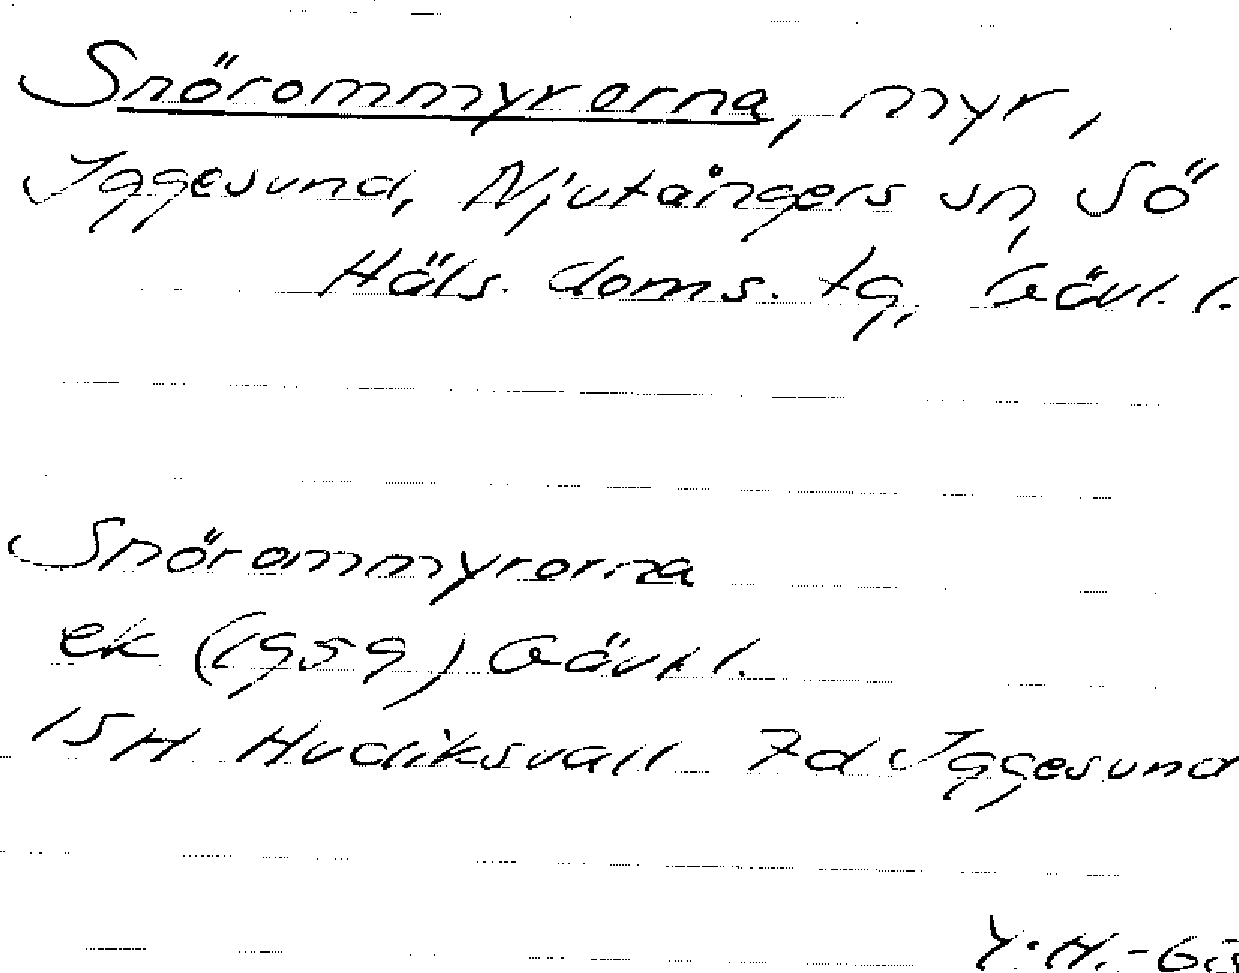 Snörommyrorna, myr,
Iggesund, Njutångers sn, Sö
Häls. doms. tg, Gävl. l.
Snörommyrorna
ek (1959) Gävl l.
15H Hudiksvall 7d Iggesund
Y.H.-63